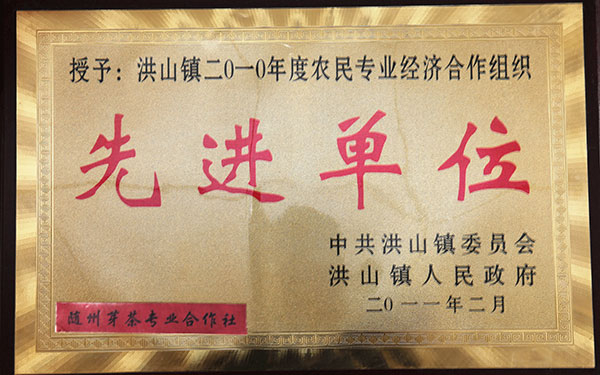 授予：洪山镇二〇一〇年度农民专业经济合作组织
先进单位
中共洪山镇委员会
洪山镇人民政府
二〇一一年二月
随州芽茶专业合作社